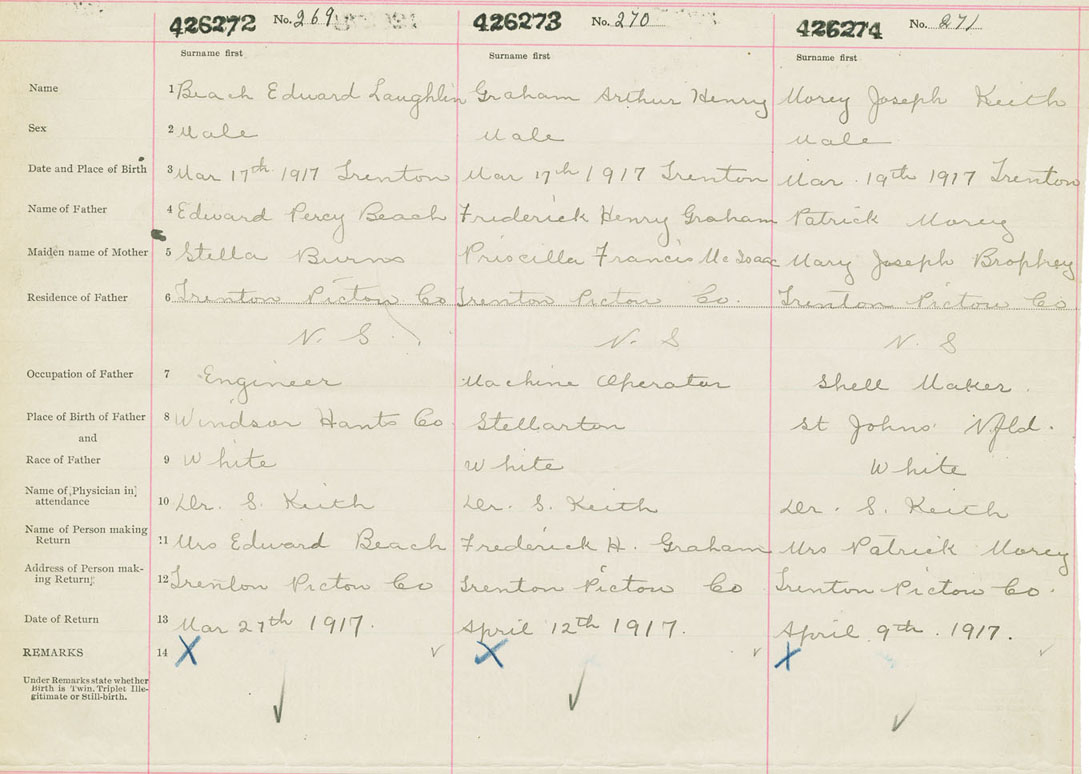 426272 No. 269 426273 No. 270 426274 No. 271
Surname first Surname first Surname first
Name 1 Beach Edward Laughlin Graham Arthur Henry Morey Joseph Keith
Sex 2 Male Male Male
Date and Place of Birth 3 Mar 17th 1917 Trenton Mar 17th 1917 Trenton Mar. 19th 1917 Trenton
Name of Father 4 Edward Percy Beach Frederick Henry Graham Patrick Morey
Maiden name of Mother 5 Stella Burns Priscilla Francis McIsaac Mary Joseph Brophey
Residence of Father 6 Trenton Pictou Co Trenton Pictou Co. Trenton Pictou Co
N. S. N. S N. S
Occupation of Father 7 Engineer Machine Operator Shell Maker.
Place of Birth of Father 8 Windsor Hants Co. Stellarton St Johns Nfld.
and
Race of Father 9 White White White
Name of Physician in
attendance 10 Dr. S. Keith Dr. S. Keith Dr. S. Keith
Name of Person making
Return 11 Mrs Edward Beach Frederick H. Graham Mrs Patrick Morey
Address of Person mak-
ing Return 12 Trenton Pictou Co Trenton Pictou Co Trenton Pictou Co.
Date of Return 13 Mar 27th 1917. April 12th 1917. April 9th. 1917.
REMARKS 14 X X X
Under Remarks state whether
Birth is Twin, Triplet Ille-
gitimate or Still-birth.